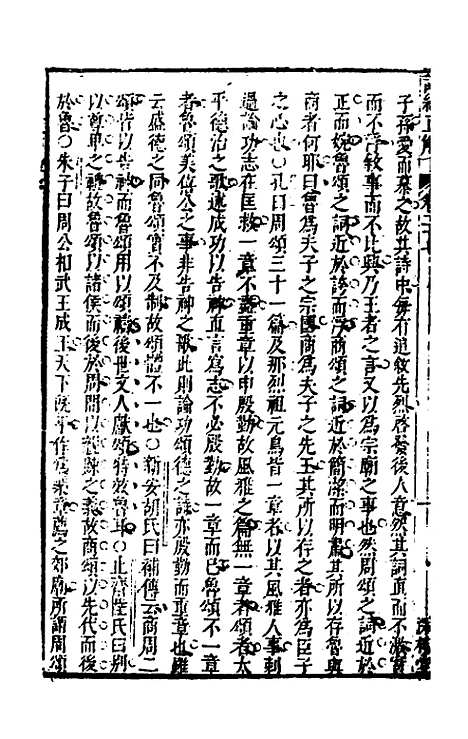 詩經正解 卷三十
子孫愛而慕之故其詩中每有追敘先烈啓發後人意然其詞直而不激實
而不誇敘事而不比興乃王者之言又以為宗廟之事也然周頌之詞近於
正而婉魯頌之詞近於誇而浮商頌之詞近於簡潔而明肅其所以存魯與
商者何耶曰魯為夫子之宗國商為夫子之先王其所以存之者亦為臣子
之心也○孔曰周頌三十一篇及那烈祖元鳥皆一章者以其風雅人事刺
過論功志在匡救一章不盡重章以申殷勤故風雅之篇無一章者頌者太
平德治之歌述成功以告神直言寫志不必殷勤故一章而已魯頌不一章
者魯頌美僖公之事非告神之歌此則論功頌德之詩亦殷勤而重章也雖
云盛德之同魯頌實不及制故頌體不一也○新安胡氏曰補傳云商周二
頌皆以告神而魯頌用以頌禱後世文人獻頌特效魯耳○止齋陳氏曰別
以尊卑之禮故魯頌以諸侯而後於周間以親疎之義故商頌以先代而後
於魯○朱子曰周公相武王成王天下既平作為樂章薦之郊廟所謂周頌
深柳堂